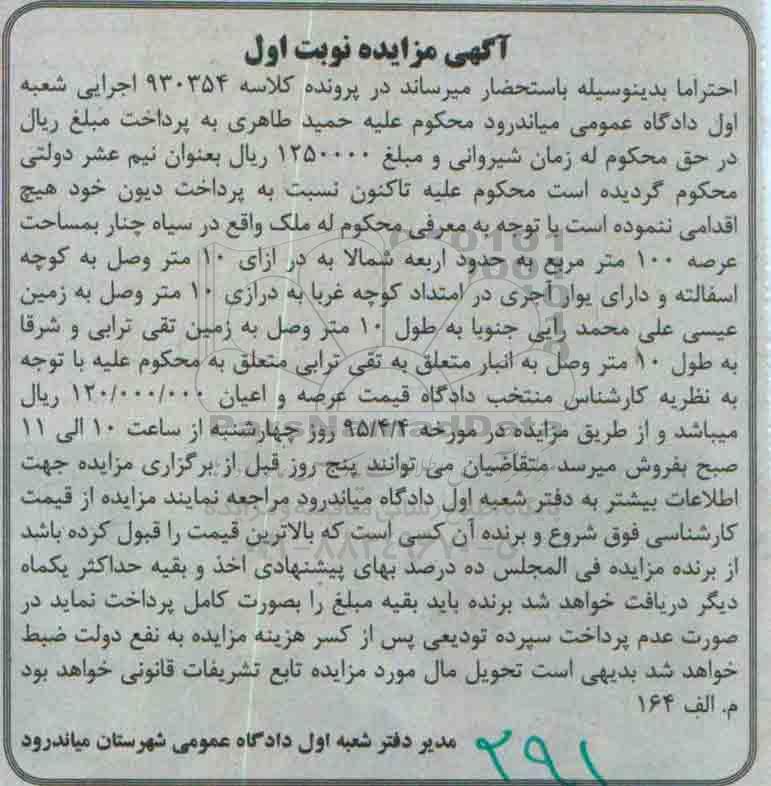 آگهی مزایده نوبت اول
احتراما بدینوسیله باستحضار میرساند در پرونده کلاسه ۹۳۰۳۵۴ اجرایی شعبه
اول دادگاه عمومی میاندرود محکوم علیه حمید طاهری به پرداخت مبلغ ریال
در حق محکوم له زمان شیروانی و مبلغ ۱۲۵۰۰۰۰ ریال بعنوان نیم عشر دولتی
محکوم گردیده است محکوم علیه تاکنون نسبت به پرداخت دیون خود هیچ
اقدامی ننموده است با توجه به معرفی محکوم له ملک واقع در سیاه چنار بمساحت
عرصه ۱۰۰ متر مربع به حدود اربعه شمالا به در ازای ۱۰ متر وصل به کوچه
اسفالته و دارای یوار آجری در امتداد کوچه غربا به درازی ۱۰ متر وصل به زمین
عیسی علی محمد رایی جنوبا به طول ۱۰ متر وصل به زمین تقی ترابی و شرقا
به طول ۱۰ متر وصل به انبار متعلق به تقی ترابی متعلق به محکوم علیه با توجه
به نظریه کارشناس منتخب دادگاه قیمت عرصه و اعیان ۱۲۰/۰۰۰/۰۰۰ ریال
میباشد و از طریق مزایده در مورخه ۹۵/۴/۴ روز چهارشنبه از ساعت ۱۰ الی ۱۱
صبح بفروش میرسد متقاضیان می توانند پنج روز قبل از برگزاری مزایده جهت
اطلاعات بیشتر به دفتر شعبه اول دادگاه میاندرود مراجعه نمایند مزایده از قیمت
کارشناسی فوق شروع و برنده آن کسی است که بالاترین قیمت را قبول کرده باشد
از برنده مزایده فی المجلس ده درصد بهای پیشنهادی اخذ و بقیه حداکثر یکماه
دیگر دریافت خواهد شد برنده باید بقیه مبلغ را بصورت کامل پرداخت نماید در
صورت عدم پرداخت سپرده تودیعی پس از کسر هزینه مزایده به نفع دولت ضبط
خواهد شد بدیهی است تحویل مال مورد مزایده تابع تشریفات قانونی خواهد بود
م. الف ۱۶۴
مدیر دفتر شعبه اول دادگاه عمومی شهرستان میاندرود
۲۹۱
ParsNamadData